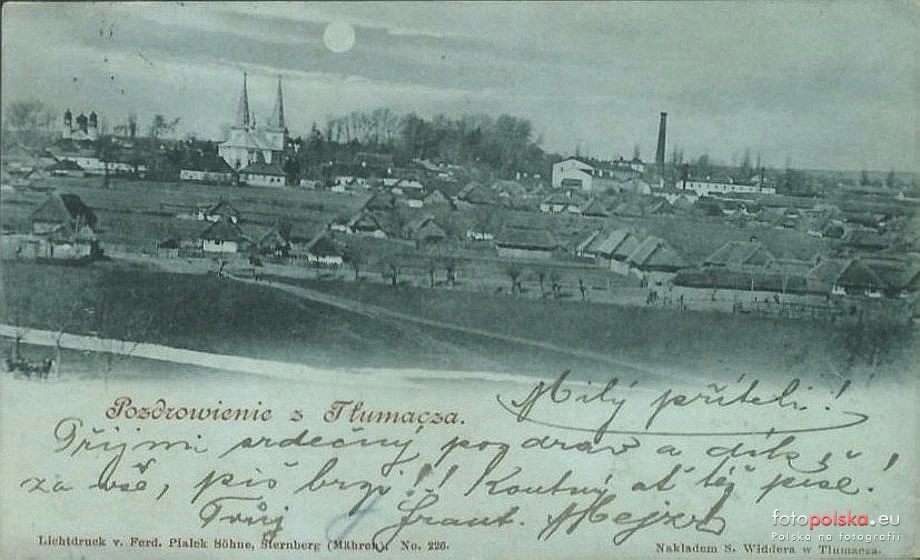 Pozdrowienie z Tłumacza.
Milý příteli!
Přijmi srdečný pozdrav a dík
za vše, piš brzi!! Koutný ať též píše!
Tvůj Frant.
Lichtdruck v. Ferd. Pialek Söhne, Sternberg (Mähren). No. 226.
Nakładem S. Widdera w Tłumaczu.
fotopolska.eu
Polska na fotografii